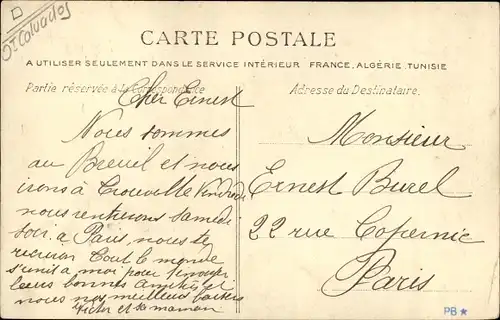 D
Dt Calvados
CARTE POSTALE
A UTILISER SEULEMENT DANS LE SERVICE INTÉRIEUR FRANCE, ALGÉRIE, TUNISIE
Partie réservée à la Correspondance
Adresse du Destinataire.
Cher Ernest
Nous sommes
au Breuil et nous
irons à Trouville Vendredi
nous rentrerons samedi
soir a Paris, nous te
Tout le monde
s'unit a moi pour t'envoyer
leurs bonnes amitiés et
nous nos meilleurs baisers
Victor et sa maman
Monsieur
Ernest Burel
22 rue Copernic
Paris
PB